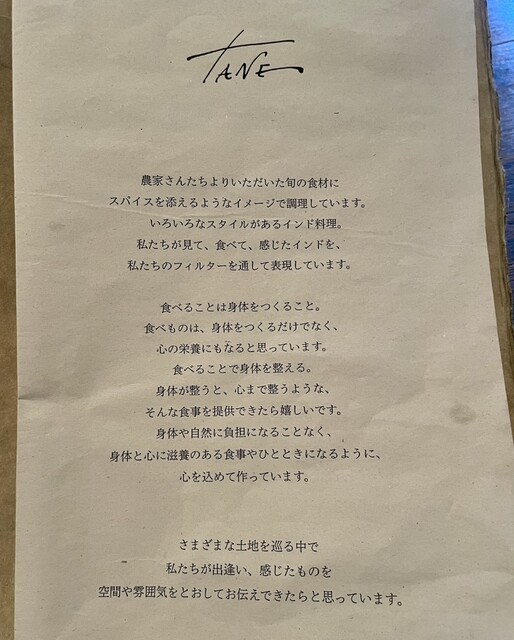 TANE
農家さんたちよりいただいた旬の食材に
スパイスを添えるようなイメージで調理しています。
いろいろなスタイルがあるインド料理。
私たちが見て、食べて、感じたインドを、
私たちのフィルターを通して表現しています。
食べることは身体をつくること。
食べものは、身体をつくるだけでなく、
心の栄養にもなると思っています。
食べることで身体を整える。
身体が整うと、心まで整うような、
そんな食事を提供できたら嬉しいです。
身体や自然に負担になることなく、
身体と心に滋養のある食事やひとときになるように、
心を込めて作っています。
さまざまな土地を巡る中で
私たちが出逢い、感じたものを
空間や雰囲気をとおしてお伝えできたらと思っています。